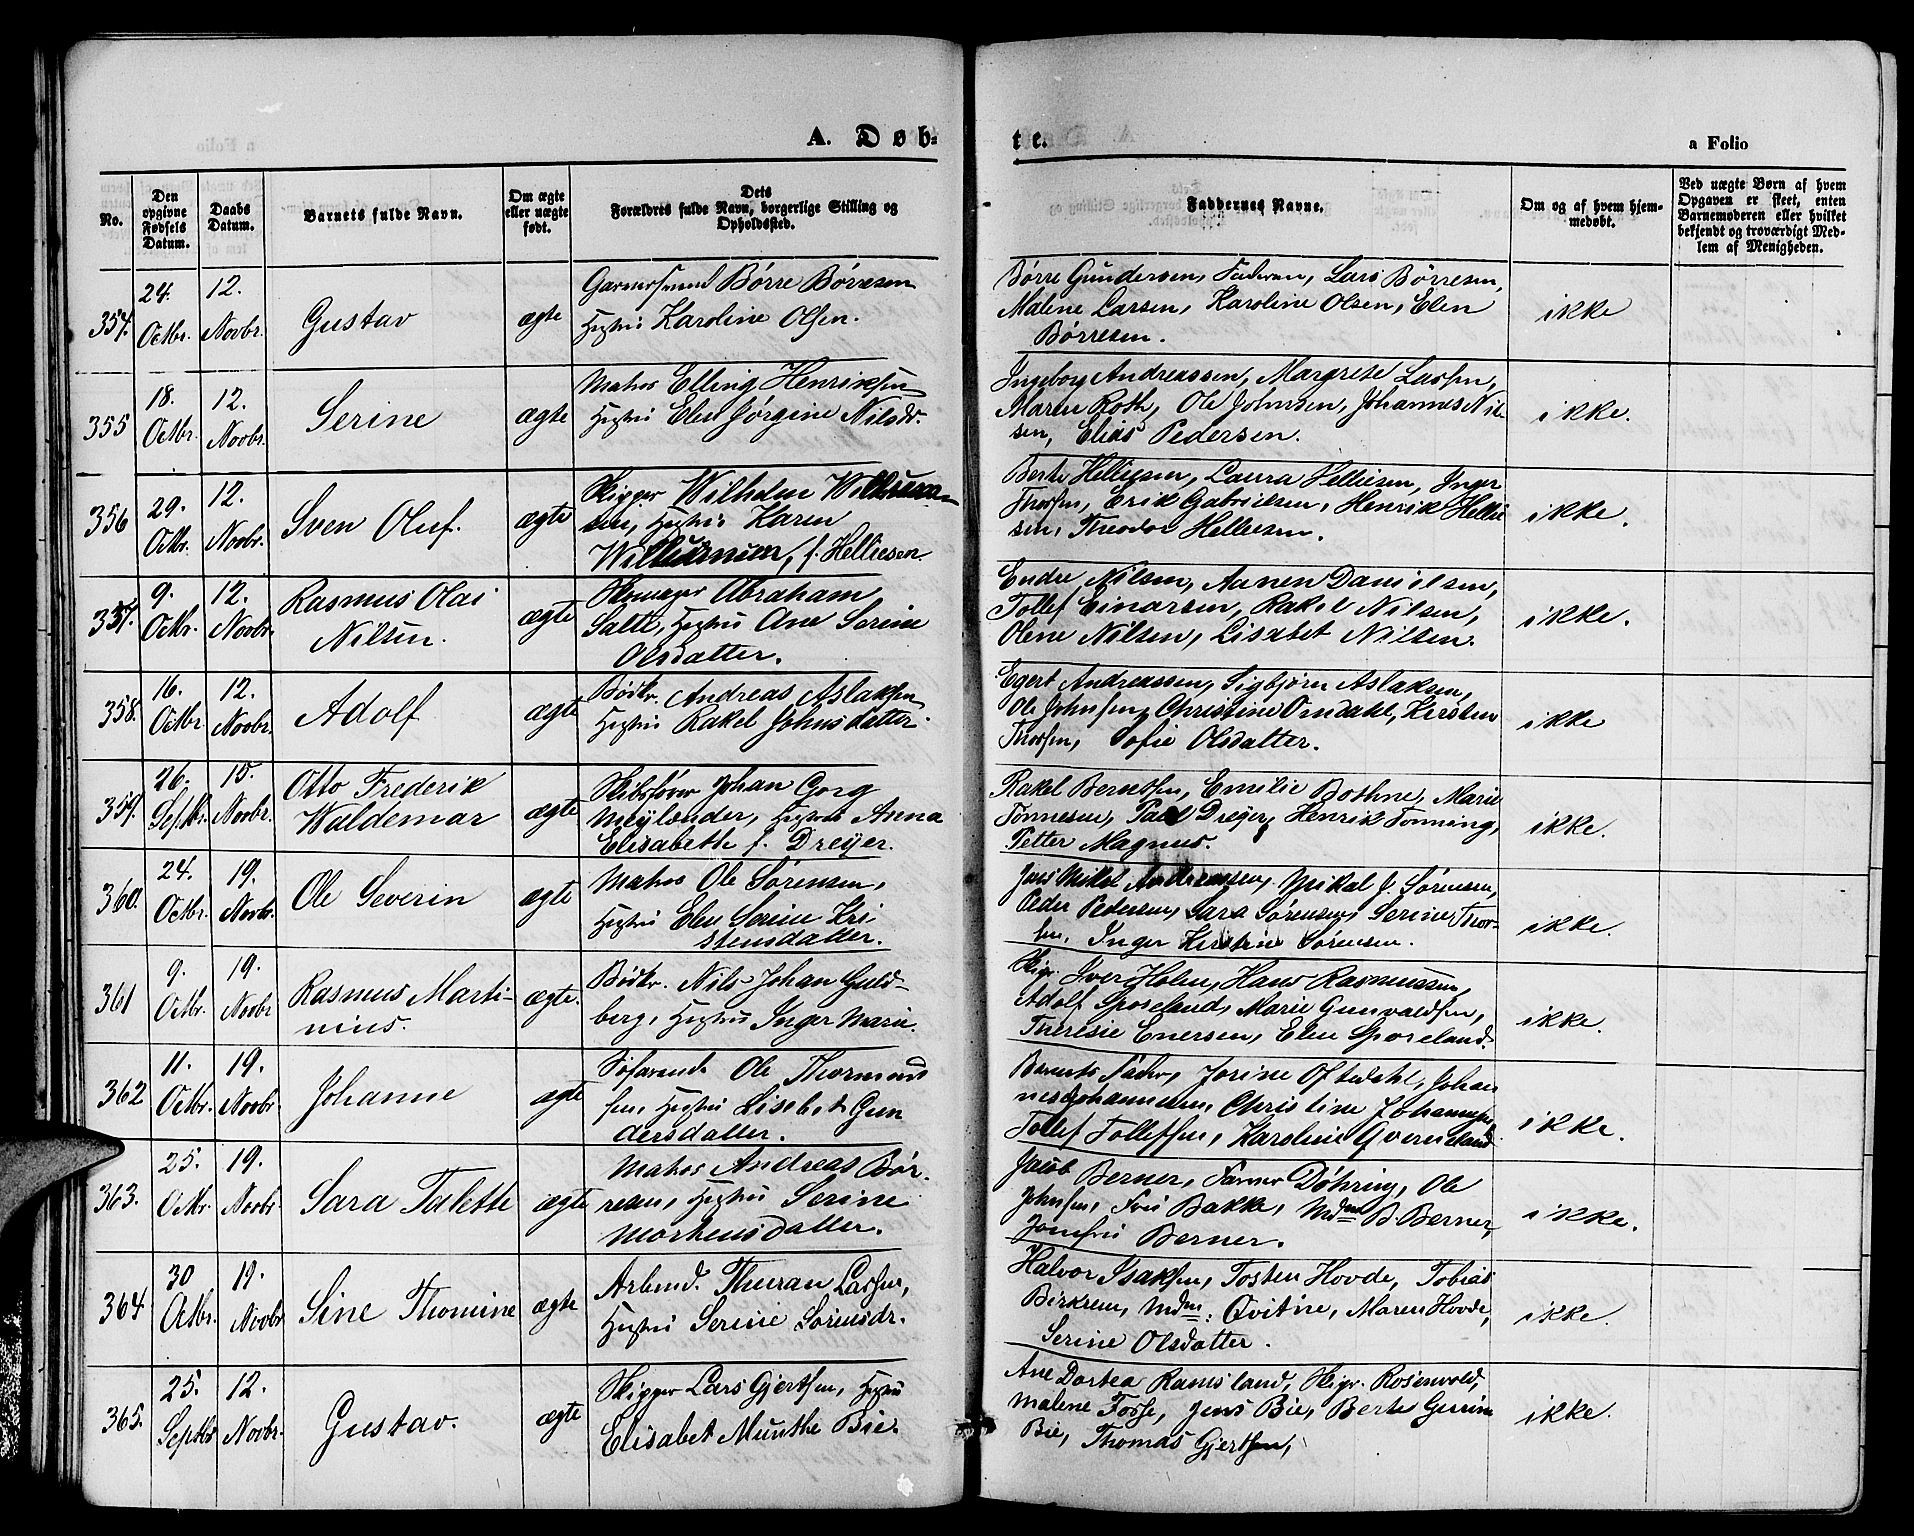 A. Døb-
te.
a Folio
No.
Den opgivne Fødsels Datum.
Daabs Datum.
Barnets fulde Navn.
Om ægte eller uægte født.
Dets Forældres fulde Navn, borgerlige Stilling og Opholdssted.
Faddernes Navne.
Om og af hvem hjemmedøbt.
Ved uægte Børn af hvem Opgaven er skeet, enten Barnemoderen eller hvilket bekjendt og troværdigt Medlem af Menigheden.
354.
24. Octbr.
12. Novbr.
Gustav
ægte
Børre Børresen
Hustru Karoline Olsen.
Børre Gundersen, Faderen, Lars Børresen,
Malene Larsen, Karoline Olsen, Elen
Børresen.
ikke
355
18. Octbr.
12. Novbr.
Serine
ægte
Matros Elling Henriksen
Hustru Elen Jørgine Nilsdr.
Ingeborg Andreassen, Margrete Larsen,
Maren Roth, Ole Johnsen, Johannes Nil-
sen, Elias Pedersen.
ikke.
356
29. Octbr.
12. Novbr.
Sven Oluf.
ægte
Skipper Wilhelm
sen, Hustru Karen
f. Helliesen.
Berte Helliesen, Laura Helliesen, Inger
Thorsen, Erik Gabrielsen, Henrik Hellie
sen, Theodor Helliesen.
ikke.
357.
9. Octbr.
12. Novbr.
Rasmus Olai
Nilsen.
ægte
Abraham
Salte, Hustru Ane Serine
Olsdatter.
Endre Nilsen, Aanen Danielsen,
Tollef Einarsen, Rakel Nilsen,
Olene Nilsen, Lisabet Nilsen.
ikke.
358.
16. Octbr
12. Novbr.
Adolf
ægte
Bødkr. Andreas Aslaksen
Hustru Rakel Johnsdatter.
Egert Andreassen, Sigbjørn Aslaksen,
Ole Johnsen, Christine Omdahl, Kirsten
Thorsen, Sofie Olsdatter.
ikke
359.
26. Septbr.
15. Novbr.
Otto Frederik
Waldemar
ægte
Skibsfører Johan Gorg
Meylænder, Hustru Anna
Elisabeth f. Dreyer.
Rakel Berntsen, Emilie Bothne, Marie
Tønnesen, Paul Dreyer, Henrik Tonning,
Petter Magnus.
ikke.
360.
24. Octbr.
19. Novbr.
Ole Severin
ægte
Matros Ole Sørensen,
Hustru Elen Serine Kri
stensdatter.
Jens Mikal Andreassen, Mikal J. Sørensen,
Peder Pedersen, Sara Sørensen, Serine Thor-
sen, Inger Kirstine Sørensen.
ikke.
361
9. Octbr.
19. Novbr
Rasmus Marti-
nius.
ægte.
Bødkr. Nils Johan Guld-
berg, Hustru Inger Marie.
Skipr. Iver Holm, Hans Rasmussen,
Adolf Sporeland, Marie Gunvaldsen,
Theresie Enersen, Elen Sporeland.
ikke.
362
11. Octbr.
19. Novbr.
Johanne
ægte
Søfarende Ole Thormod
sen, Hustru Lisebet Gun
dersdatter.
Barnets Fader, Jorine Oftedahl, Johan
nes Johannesen, Christine Johannesen,
Tollef Tollefsen, Karoline Qverneland.
ikke.
363.
25. Octbr.
19. Novbr.
Sara Talette
ægte
Matros Andreas Bør-
resen, Hustru Serine
Mortensdatter.
Jacob Berner, Farver Döhring, Ole
Johnsen, Fru Bakke, Mdm B. Berner,
Jomfru Berner.
ikke.
364
30 Octbr.
19. Novbr
Sine Thomine
ægte
Arbmd. Thuran Larsen,
Hustru Serine Sørensdr.
Halvor Isaksen, Tosten Hovde, Tobias
Birkrem, Mdm: Qvitine, Maren Hovde,
Serine Olsdatter.
ikke.
365.
25. Septbr
12. Novbr.
Gustav.
ægte
Skipper Lars Gjertsen, Hustru
Elisabet Munthe Bie.
Ane Dortea Ramsland, Skipr. Rosenvold,
Malene Fosse, Jens Bie, Berte Gurine
Bie, Thomas Gjertsen,
ikke.